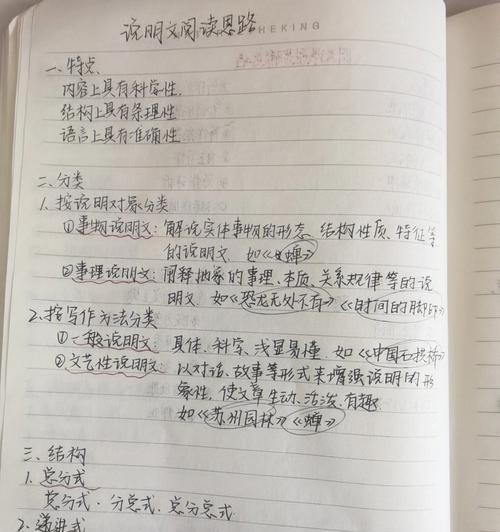 说明文阅读思路
HEKING
一、特点
内容上具有科学性.
结构上具有条理性
语言上具有准确性
二、分类
1.按说明对象分类
①事物说明文: 解说实体事物的形态、结构性质、特征等
的说明文. 如《蝉》
②事理说明文: 阐释抽象的事理、本质、关系规律等的说
明文. 如《恐龙无处不有》《时间的脚印》
2.按写作方法分类
①一般说明文: 具体、科学、浅显易懂. 如《中国石拱桥》
②文艺性说明文: 以对话、故事等形式来增强说明的形
象性, 使文章生动、活泼、有趣
如《苏州园林》《蝉》
三、结构
1.总分式
总分式·分总式.总分总式
2.递进式